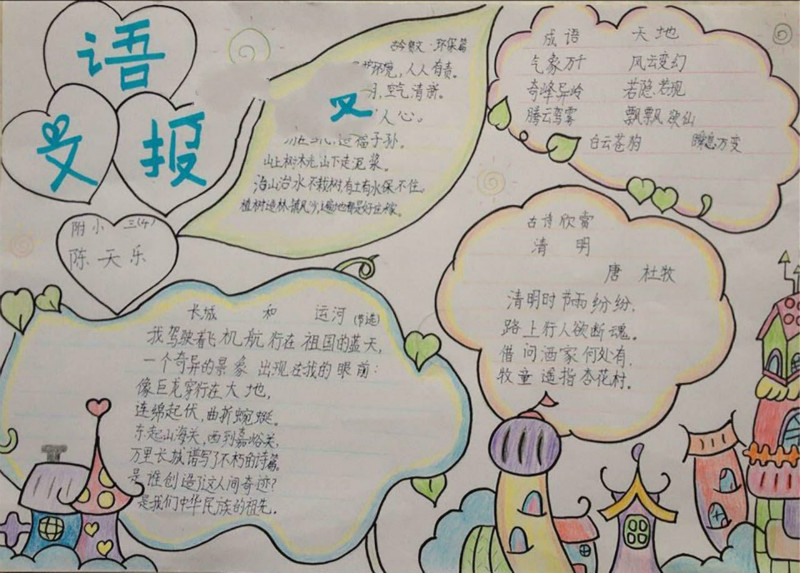 语
文报
附小 三(4)
陈天乐
环保篇
环境,人人有责。
空气清新。
人心。
子孙。
山上树木光 山下走泥浆。
治山治水不栽树 有土有水保不住。
植树造林
成语 天地
气象万千 风云变幻
奇峰异岭 若隐若现
腾云驾雾 飘飘欲仙
白云苍狗 瞬息万变
古诗欣赏
清明
唐 杜牧
清明时节雨纷纷,
路上行人欲断魂。
借问酒家何处有,
牧童遥指杏花村。
长城 和 运河(节选)
我驾驶着飞机航行在祖国的蓝天,
一个奇异的景象 出现在我的眼前:
像巨龙穿行在大地,
连绵起伏,曲折蜿蜒。
东起山海关,西到嘉峪关,
万里长城谱写了不朽的诗篇。
是谁创造了这人间奇迹?
是我们中华民族的祖先。